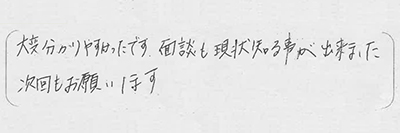 大変分かりやすかったです。面談も現状知る事が出来ました
次回もお願いします